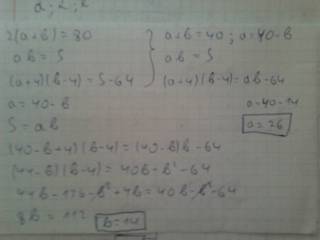 a; 2; 2
2(a+b)=80
ab=S
(a+4)(b-4)=S-64
a=40-b
S=ab
a+b=40; a=40-b
ab=S
(a+4)(b-4)=ab-64
a=40-14
a=26
(40-b+4)(b-4)=(40-b)b-64
(44-b)(b-4)=40b-b²-64
44b-176-b²+4b=40b-b²-64
8b=112 b=14